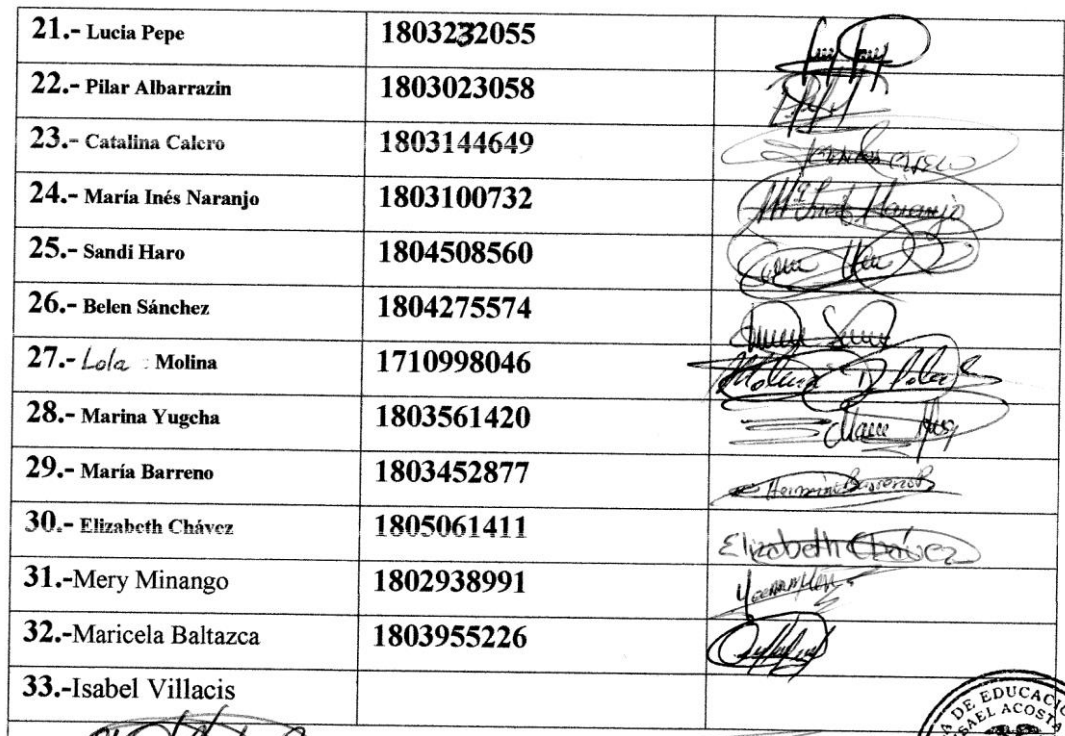 21.- Lucia Pepe 1803232055
22.- Pilar Albarrazin 1803023058
23.- Catalina Calero 1803144649
24.- María Inés Naranjo 1803100732 Mª Inés Naranjo
25.- Sandi Haro 1804508560
26.- Belen Sánchez 1804275574
27.- Lola Molina 1710998046 Molina D Lola
28.- Marina Yugcha 1803561420
29.- María Barreno 1803452877
30.- Elizabeth Chávez 1805061411 Elizabeth Chávez
31.-Mery Minango 1802938991
32.-Maricela Baltazca 1803955226
33.-Isabel Villacis
DE EDUCACIO
ACOSTA